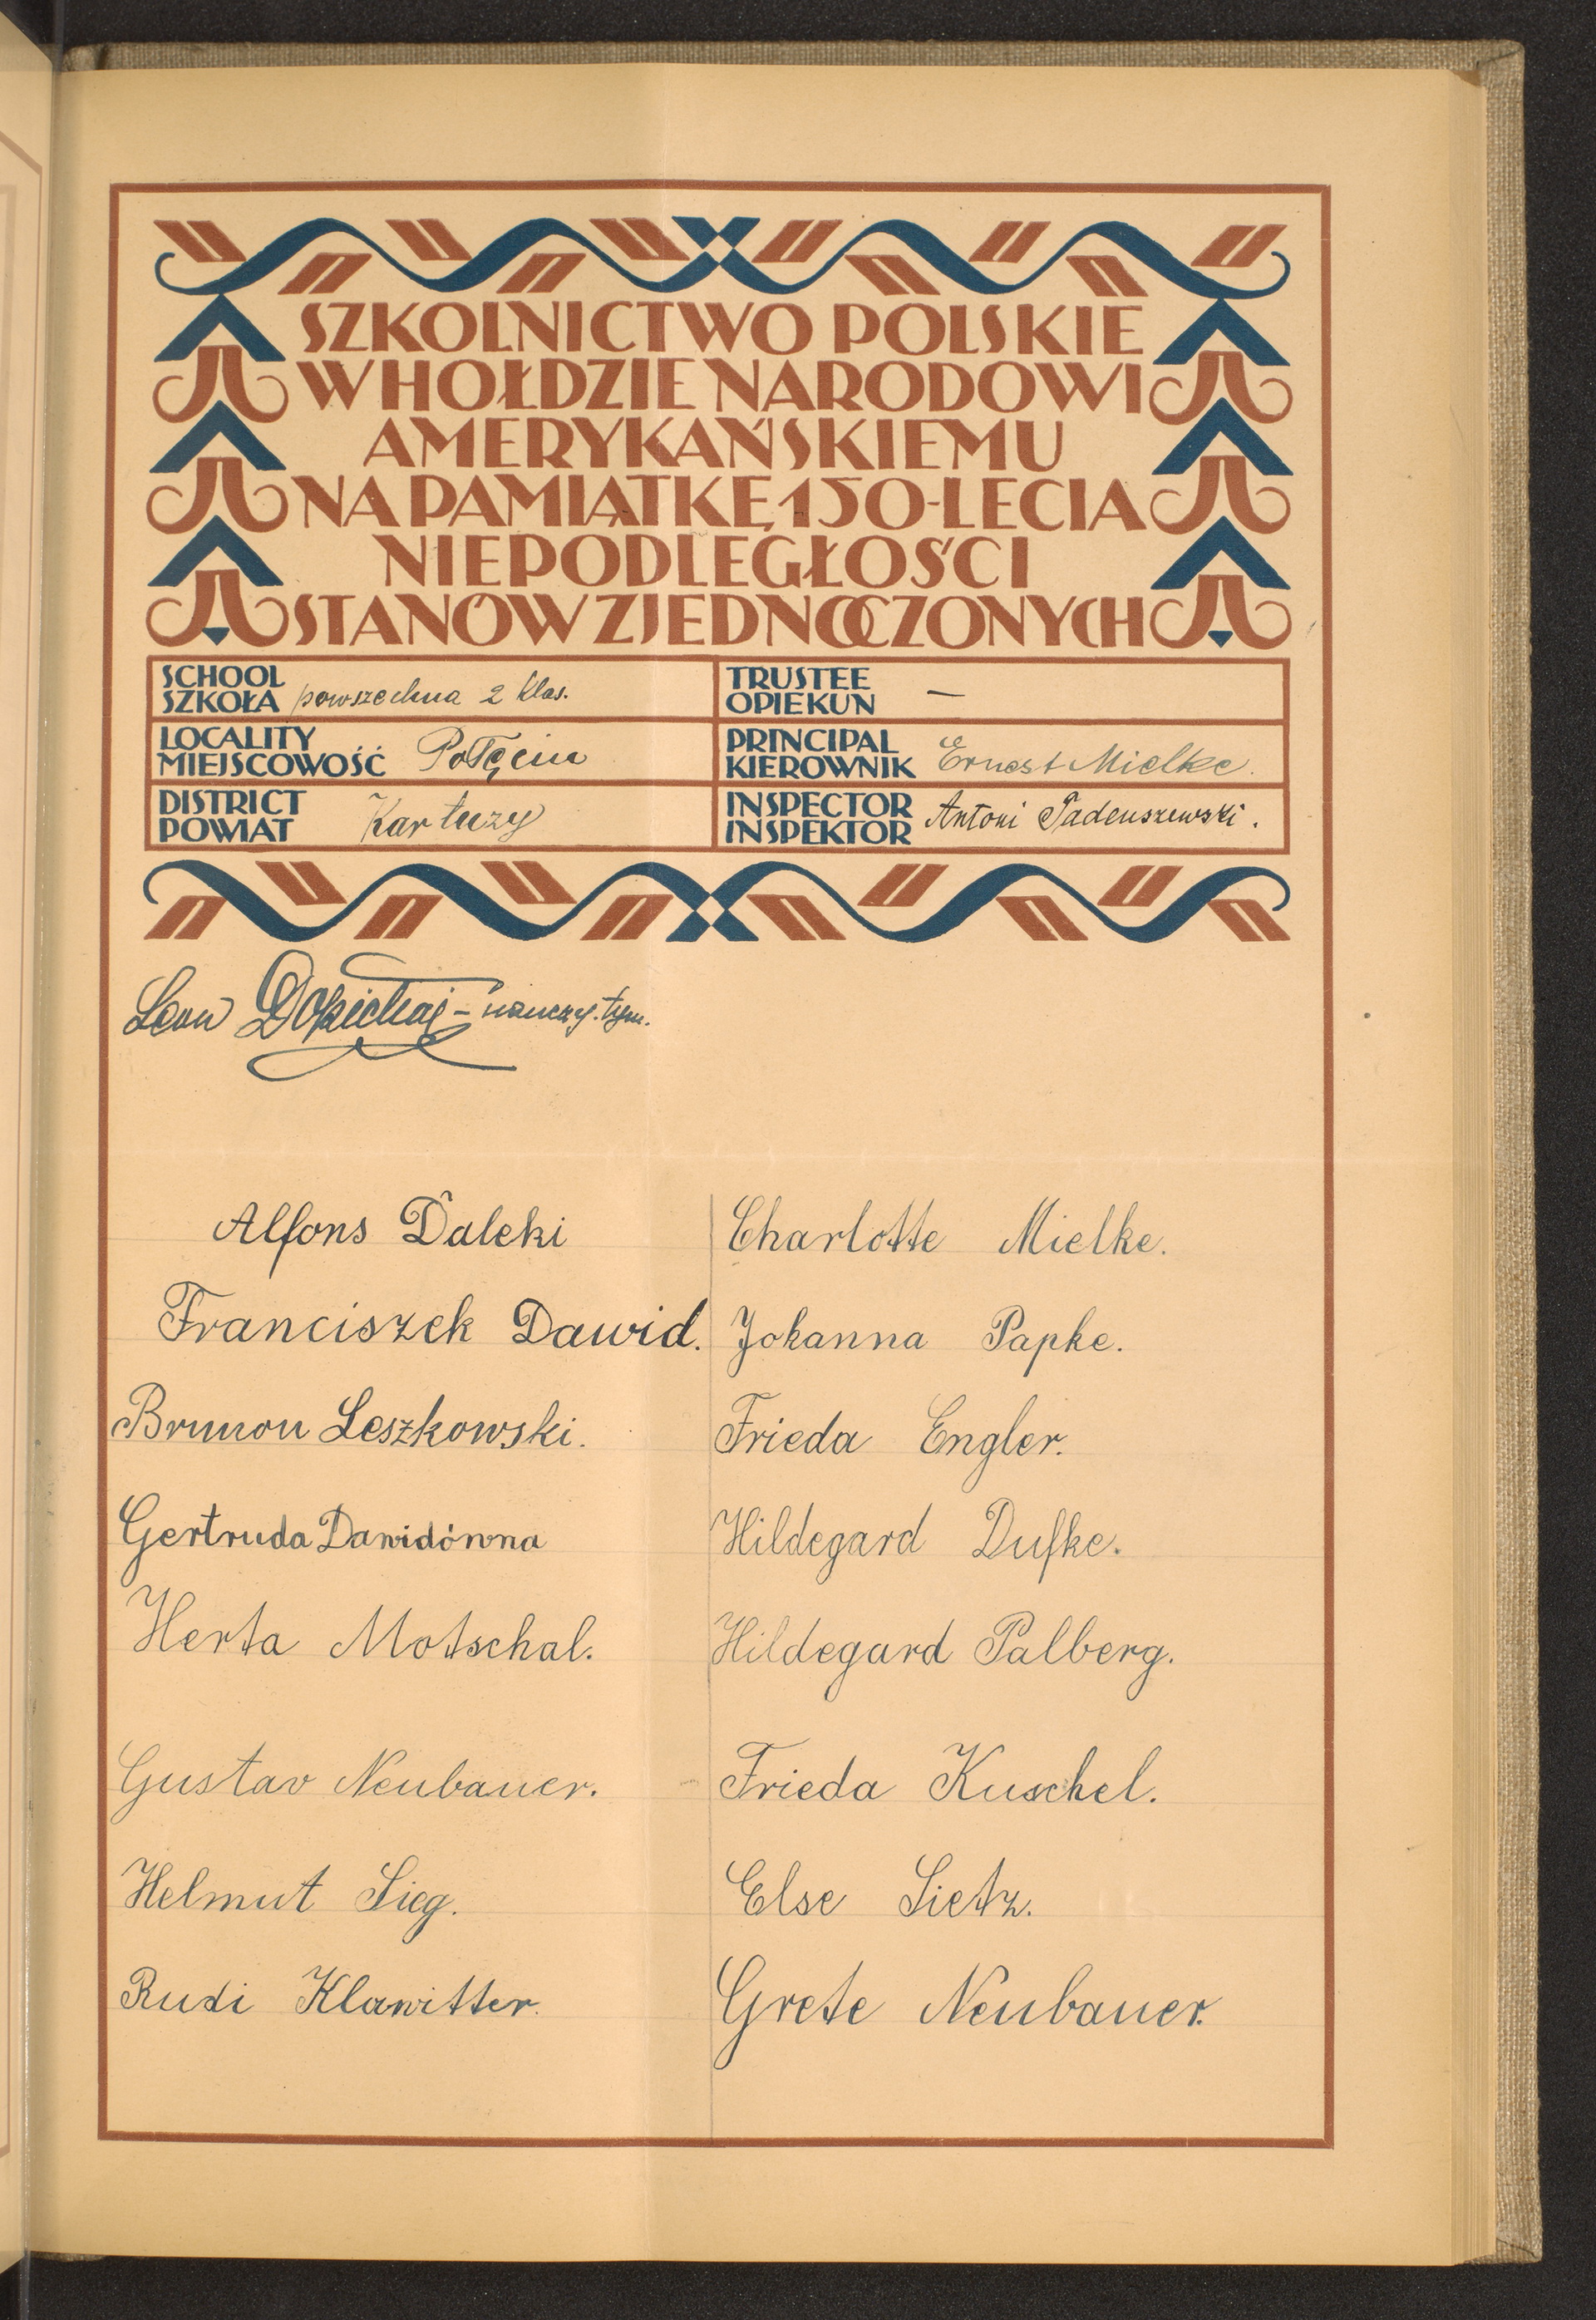 SZKOLNICTWO POLSKIE
W HOŁDZIE NARODOWI
AMERYKAŃSKIEMU
NA PAMIĄTKĘ 150-LECIA
NIEPODLEGŁOŚCI
STANÓW ZJEDNOCZONYCH
SCHOOL
SZKOŁA powszechna 2 klas.
LOCALITY
MIEJSCOWOŚĆ Połęcin
DISTRICT
POWIAT Kartuzy
TRUSTEE
OPIEKUN —
PRINCIPAL
KIEROWNIK Ernest Mielke.
INSPECTOR
INSPEKTOR Antoni Tadeuszewski.
Leon - nauczy. tym.
Alfons Daleki
Franciszek Dawid.
Brunon Leszkowski.
Gertruda Dawidówna
Herta Motschal.
Gustav Neubauer.
Helmut Sieg.
Rudi Klawitter.
Charlotte Mielke.
Johanna Papke.
Frieda Engler.
Hildegard Dufke.
Hildegard Palberg.
Frieda Kuschel.
Else Lietz.
Grete Neubauer.